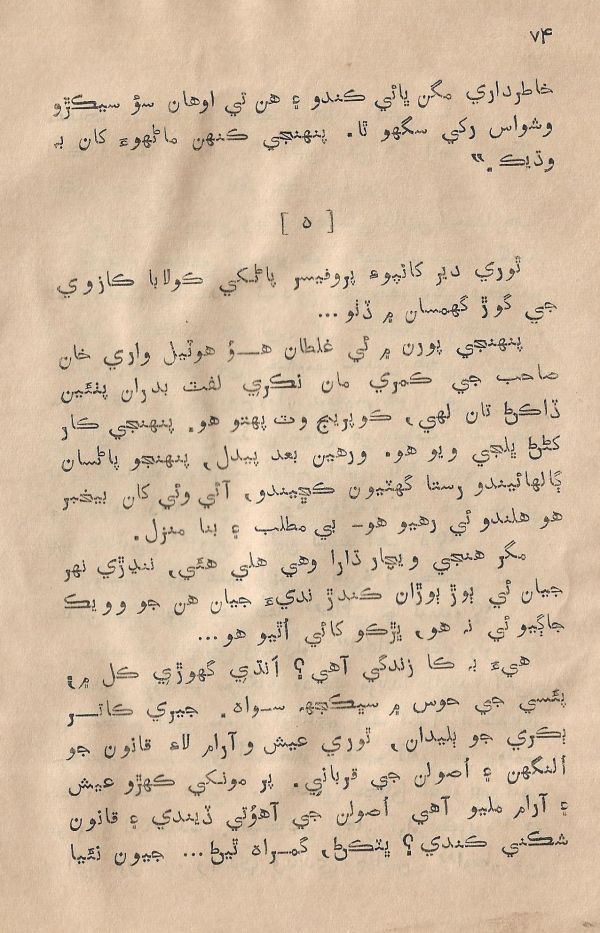 ۷۴
خاطرداري مگن ڀائي ڪندو ۽ هن تي اوهان سؤ سيڪڙو
وشواس رکي سگهو ٿا. پنهنجي ڪنهن ماڻهوءَ کان به
وڌيڪ.“
[ ٥ ]
ٿوري دير کانپوءِ پروفيسر پاڻکي ڪولابا ڪازوي
جي گوڙ گهمسان ۾ ڏٺو...
پنهنجي پورن ۾ ئي غلطان هــؤ هوٽيل واري خان
صاحب جي ڪمري مان نڪري لفٽ بدران پنئين
ڏاڪڻ تان لهي، ڪوپريج وٽ پهتو هو. پنهنجي ڪار
کڻڻ ڀلجي ويو هو. ورهين بعد پيدل، پنهنجو پاڻسان
ڳالهائيندو رستا گهٽيون ڪڇيندو، آئي وئي کان بيخبر
هو هلندو ئي رهيو هو– بي مطلب ۽ بنا منزل.
مگر هنجي ويچار ڌارا وهي هلي هئي، ننڍڙي نهر
جيان ئي ٻوڙ ٻوڙان ڪندڙ نديءَ جيان هن جو وويڪ
جاڳيو ئي نه هو، ڀڙڪو کائي اُٿيو هو...
هيءَ به ڪا زندگي آهي؟ اَنڌي گهوڙي ڪل ۾،
پئسي جي حوس ۾ سڀڪجهه سواه. جيري ڪاتــر
ٻڪري جو ٻليدان، ٿوري عيش و آرام لاءِ قانون جو
اُلنگهن ۽ اُصولن جي قرباني. پر مونکي ڪهڙو عيش
۽ آرام مليو آهي اُصولن جي آهوُتي ڏيندي ۽ قانون
شڪني ڪندي؟ ڀٽڪڻ، گمـراه ٿيڻ... جيون نئيا